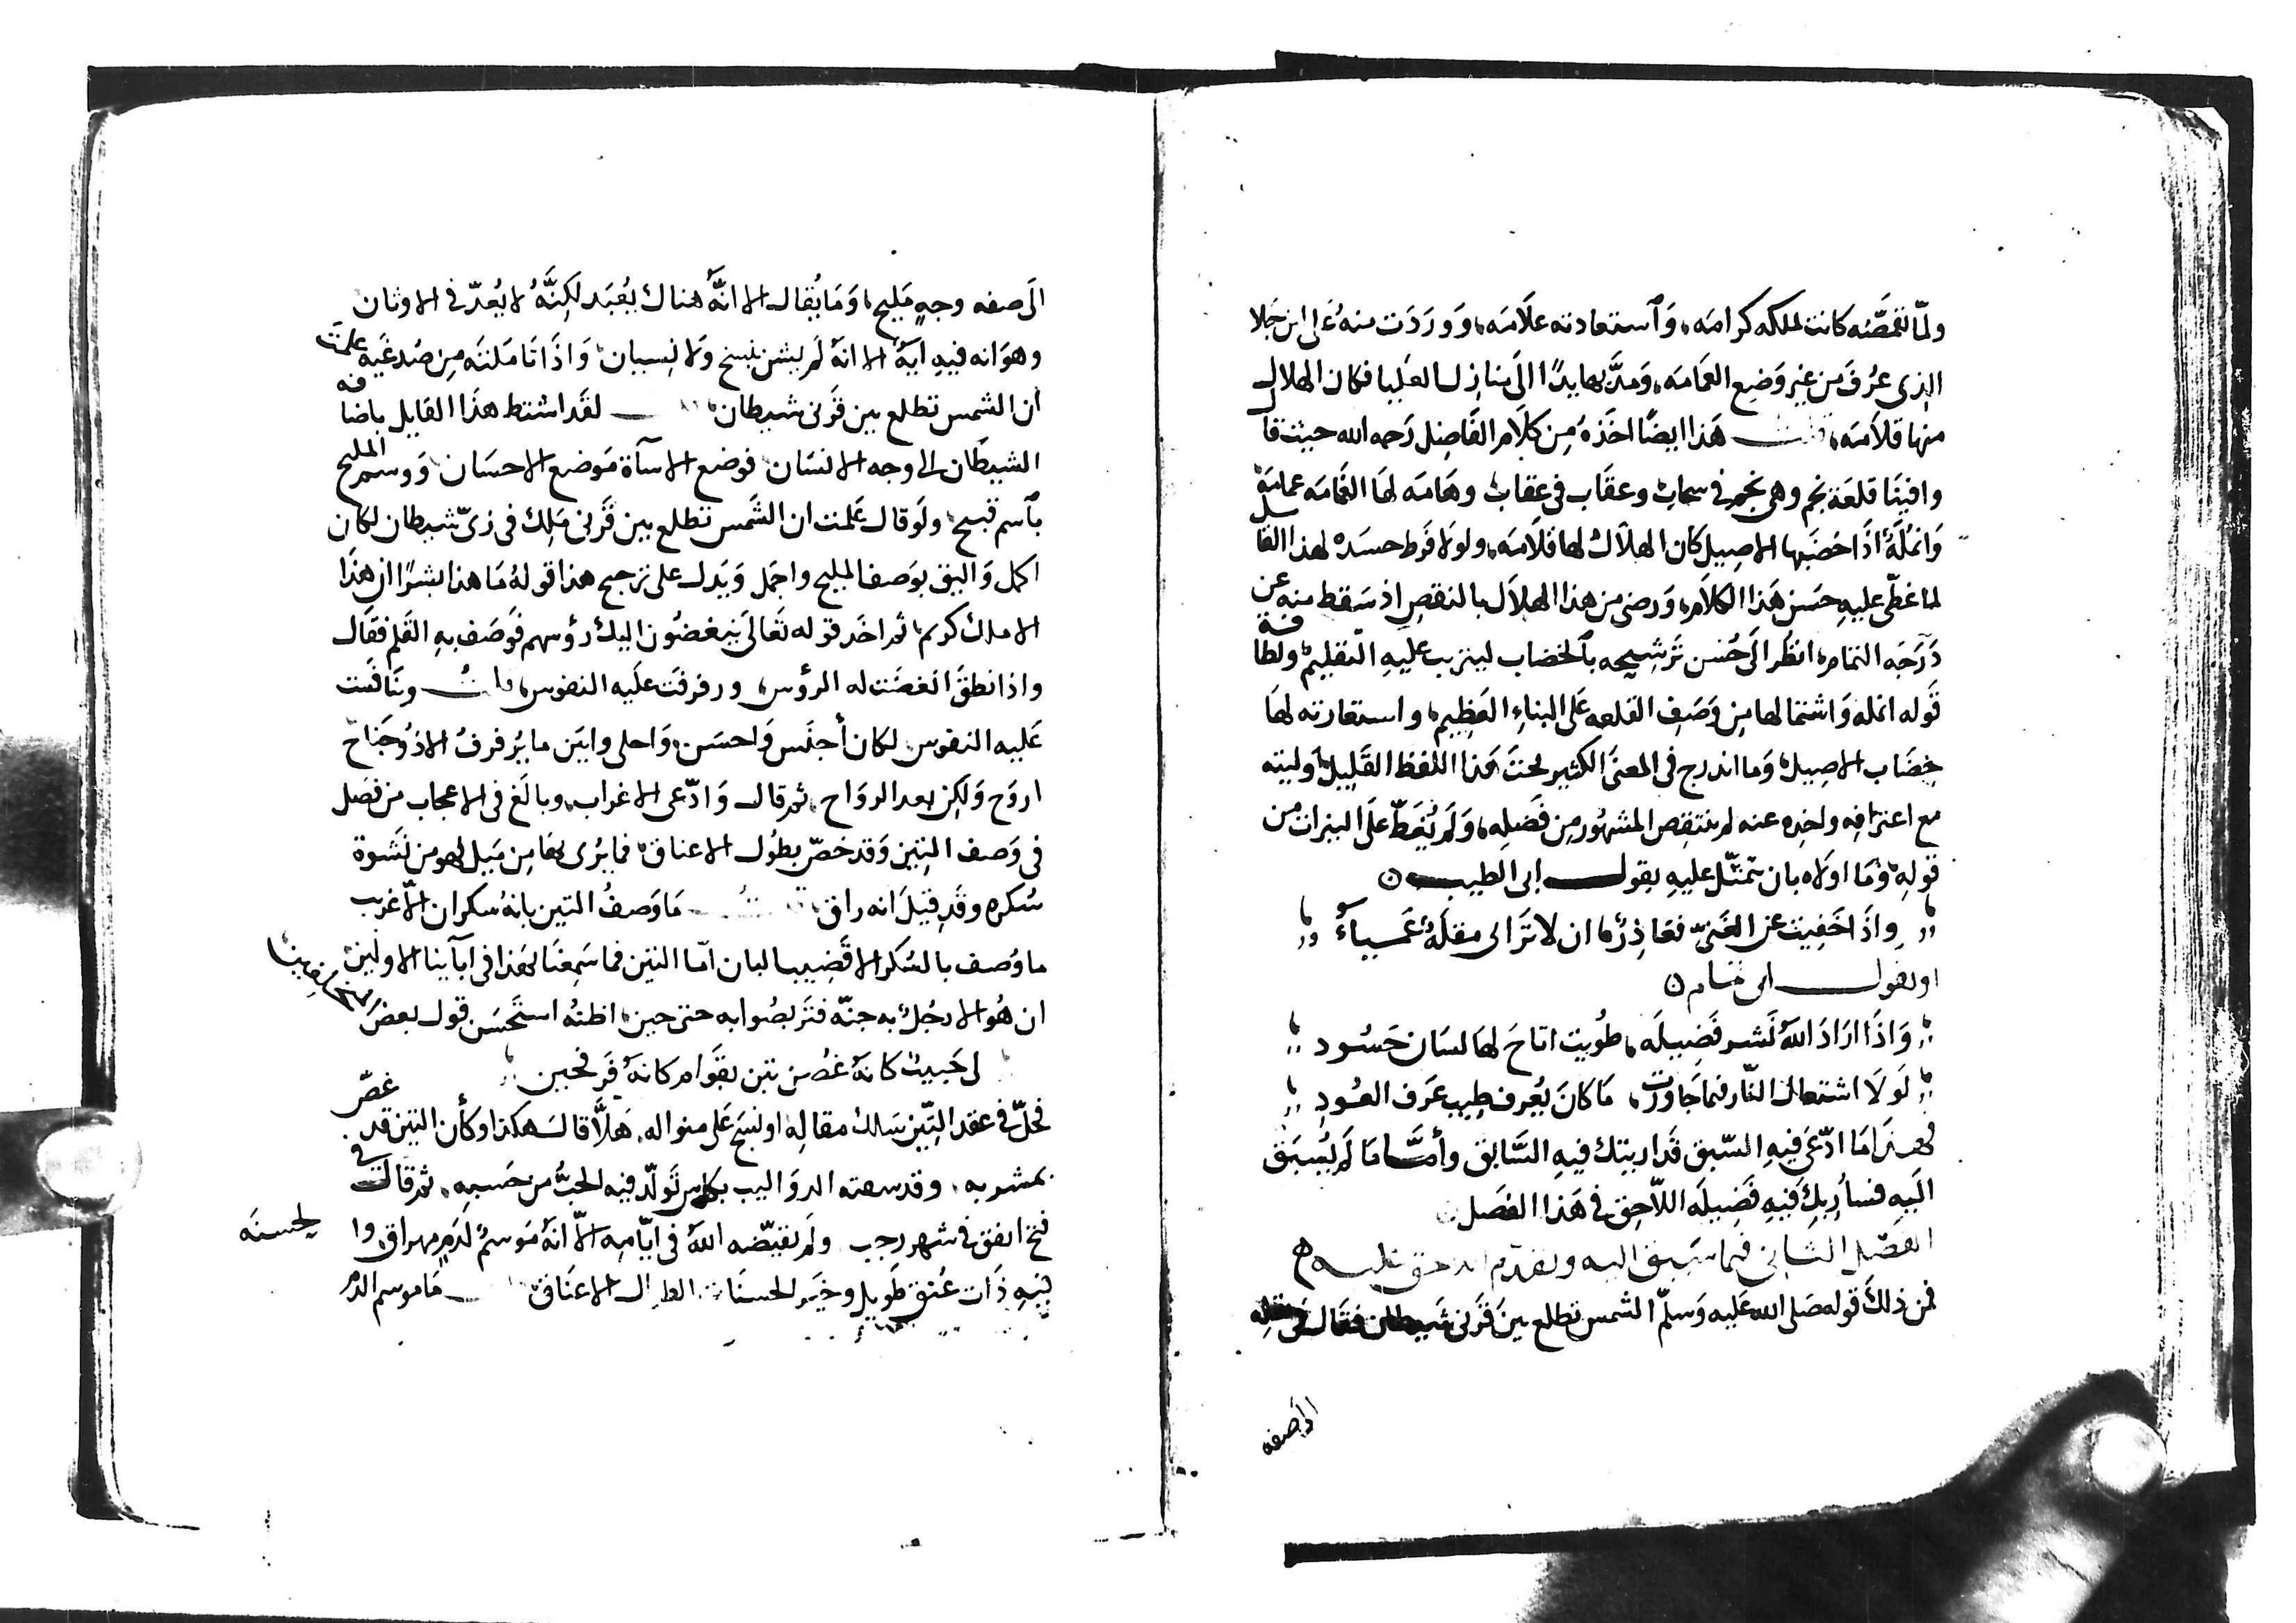 ولمّا تقمّصَته كانت لملكه كرامَه، وَاستعادته علَامَه، وَوردَت منهُ عَلى ابن جَلا
الذى عرُفَ من غير وَضِع العَمامَه، وَمدَّ بها يدًا الَى منازل العُليا فكان الهلال
منها قلاَمَه، قلت هَذا ايضًا اخَذهُ مِن كلَام الفَاضِل رَحمه الله حيث قال
وافينَا قلعَة نجم وهى نجم فى سحاب وعقَاب فى عقاب وهَامَه لهَا الغَمامَه عمامَة
وَانمُلَةٌ اذَا خضَبها الاصِيل كان الهلَال لها قلَامَه، ولولَا فَرط حسَده لهذا القايل
لما غطّى عليهِ حسَن هَذا الكلام، وَرضى من هذا الهلَال بالنقصِ اذ سَقط منه عن
دَرَجَه التمام، انظر الَى حُسن تَرشيحه بالخضاب ليترتب عليهِ التقليم، ولطافة
قَوله انمله وَاشتمالها مِن وَصَفِ القلعه عَلى البناءِ العَظِيم، واستعارته لهَا
خِضَاب الاصِيل، وَما اندرج فى المعنَى الكثير تحتَ هَذا اللفظ القَلِيل، وَليته
مع اعترافِه واخذه عنه لم ينتقص المشهُور مِن فَضلِه، وَلَم يُغَطّ علَى النيرات من
قولهِ، وَمَا اولَاه بان يتمثّل عليهِ بقول ابى الطيب
وِاذَا خَفِيت عن الغَبىّ فعَاذِرٌ، ان لا تَرانى مقلَةٌ عَميَاءُ
او بقول ابى تمام
وَاذَا ارَادَ اللهُ نَشر فَضِيلَه، طُويت اتاحَ لها لسَان حَسُود
لَولَا اشتعال النّار فيما جَاوَرت، مَا كانَ يُعرف طِيب عَرَف العُودِ
فهذَا مَا ادّعَى فِيهِ السّبق قَد اريتك فيهِ السَّابق وأمَّا مَا لَم يُسبَق
اليَهِ فسأُرِيكَ فيهِ فَضِيلَه اللاّحِق فى هَذا الفصَل
الفصَل الثانى فيما سَبق اليه وتقدّم اللاحق عليه
فمن ذلكَ قوله صَلى الله عَليه وَسلمّ الشمس تطلع بينَ قَرنَى شَيطان فقَال
الى صفه
الَى صفه وجهٍ مَليح، وَمَا يُقال الا انّهُ هناك يُعْبَد لَكِنَّهُ لا يُعدّ فى الاوثان
وهوَ انه فيهِ ايَهٌ الا انهُ لَم يشن بنسخ وَلا نِسيان، وَاذَا تَامَلتَه مِن صُدغَيه علمتَ
أن الشمس تطلع بين قَرنى شيطان لقَد اشتط هذَا القايل باضافه
الشيطَان الى وجه الانسَان فوضع الاسآة مَوضع الاحسَان وَوسم المليح
بآسم قبيح، ولَو قال عَلمت ان الشَمس تطلع بين قَرنى مَلِك فى زىّ شيطان لكان
اكمل وَاليق بوَصف المليح واجمَل وَيَدل على ترجيح هذا قولهُ مَا هذا بشرًا ان هذَا
الا ملك كريم، ثم اخَذ قوله تَعالَى فينغضُون اليك رؤسهم فوَصَف بهِ القَلم فقَال
واذا نطق انغضَت له الرؤس، ورفرفَت علَيه النفوس، قلت وتنَافَست
عَليه النفوس لكان أجنَس وَاحسَن، وَاحلى وابيَن ما يُرفرفُ الا ذُو جَناح
اروَح وَلكِن بعد الروَاح، ثم قال وَادّعى الاغراب، وبالَغ فى الاعجاب من فصَل
فى وَصف التِين وَقد خصّ بطُول الاعناق، فما يرُى بهَا مِن مَيل فهو من نَشوة
سُكره وقد قِيلَ انه راق مَا وَصفُ التين بانهُ سكران الاّ غرِيب
ما وُصف بالسُكر الا قَضِيب البان امّا التين فما سَمِعنَا بهَذا فى آبآئنا الاولين
ان هُو الا رجُل به جنّة فتَربصُوا به حتى حين، اظنهُ استَحسَن قول بعضَ
لى حَبيبٌ كانهُ غصُن تين بقوَام كانهُ فَرْ
فحلّ فى عقد التِّين سَلك مقالِه او نسَج عَلى منواله، هَلاَّ قال هكذا وكأن التين قد غصّ
بمشربه، وقد سقته الدوَاليب بكاس تَولّد فيه الحبُّ من حَببِه، ثم قال فى
فتح اتفق فى شهر رجب ولَم يقيّضه اللهُ فى ايّامِه الاّ انهُ مَوسمٌ لدَمٍ مهراق، وا لحسنَه
فيَهِ ذَات عُنق طَويل وخَير الحسنَات الطوال الاعنَاق مَا موسم الدم